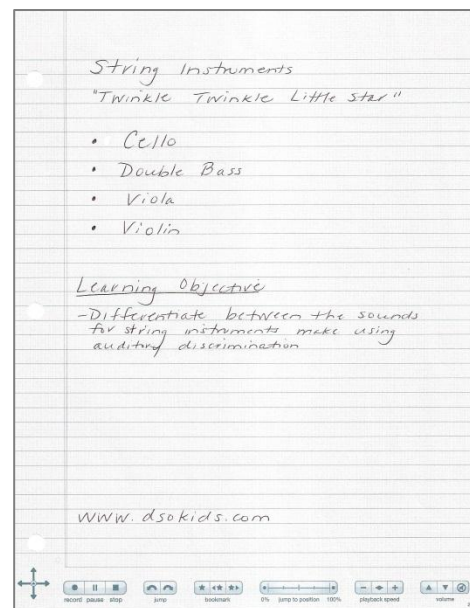 String Instruments
"Twinkle Twinkle Little Star"
• Cello
• Double Bass
• Viola
• Violin
Learning Objective
-Differentiate between the sounds
for string instruments make using
auditory discrimination
www.dsokids.com
record pause stop jump bookmark 0% jump to position 100% playback speed volume